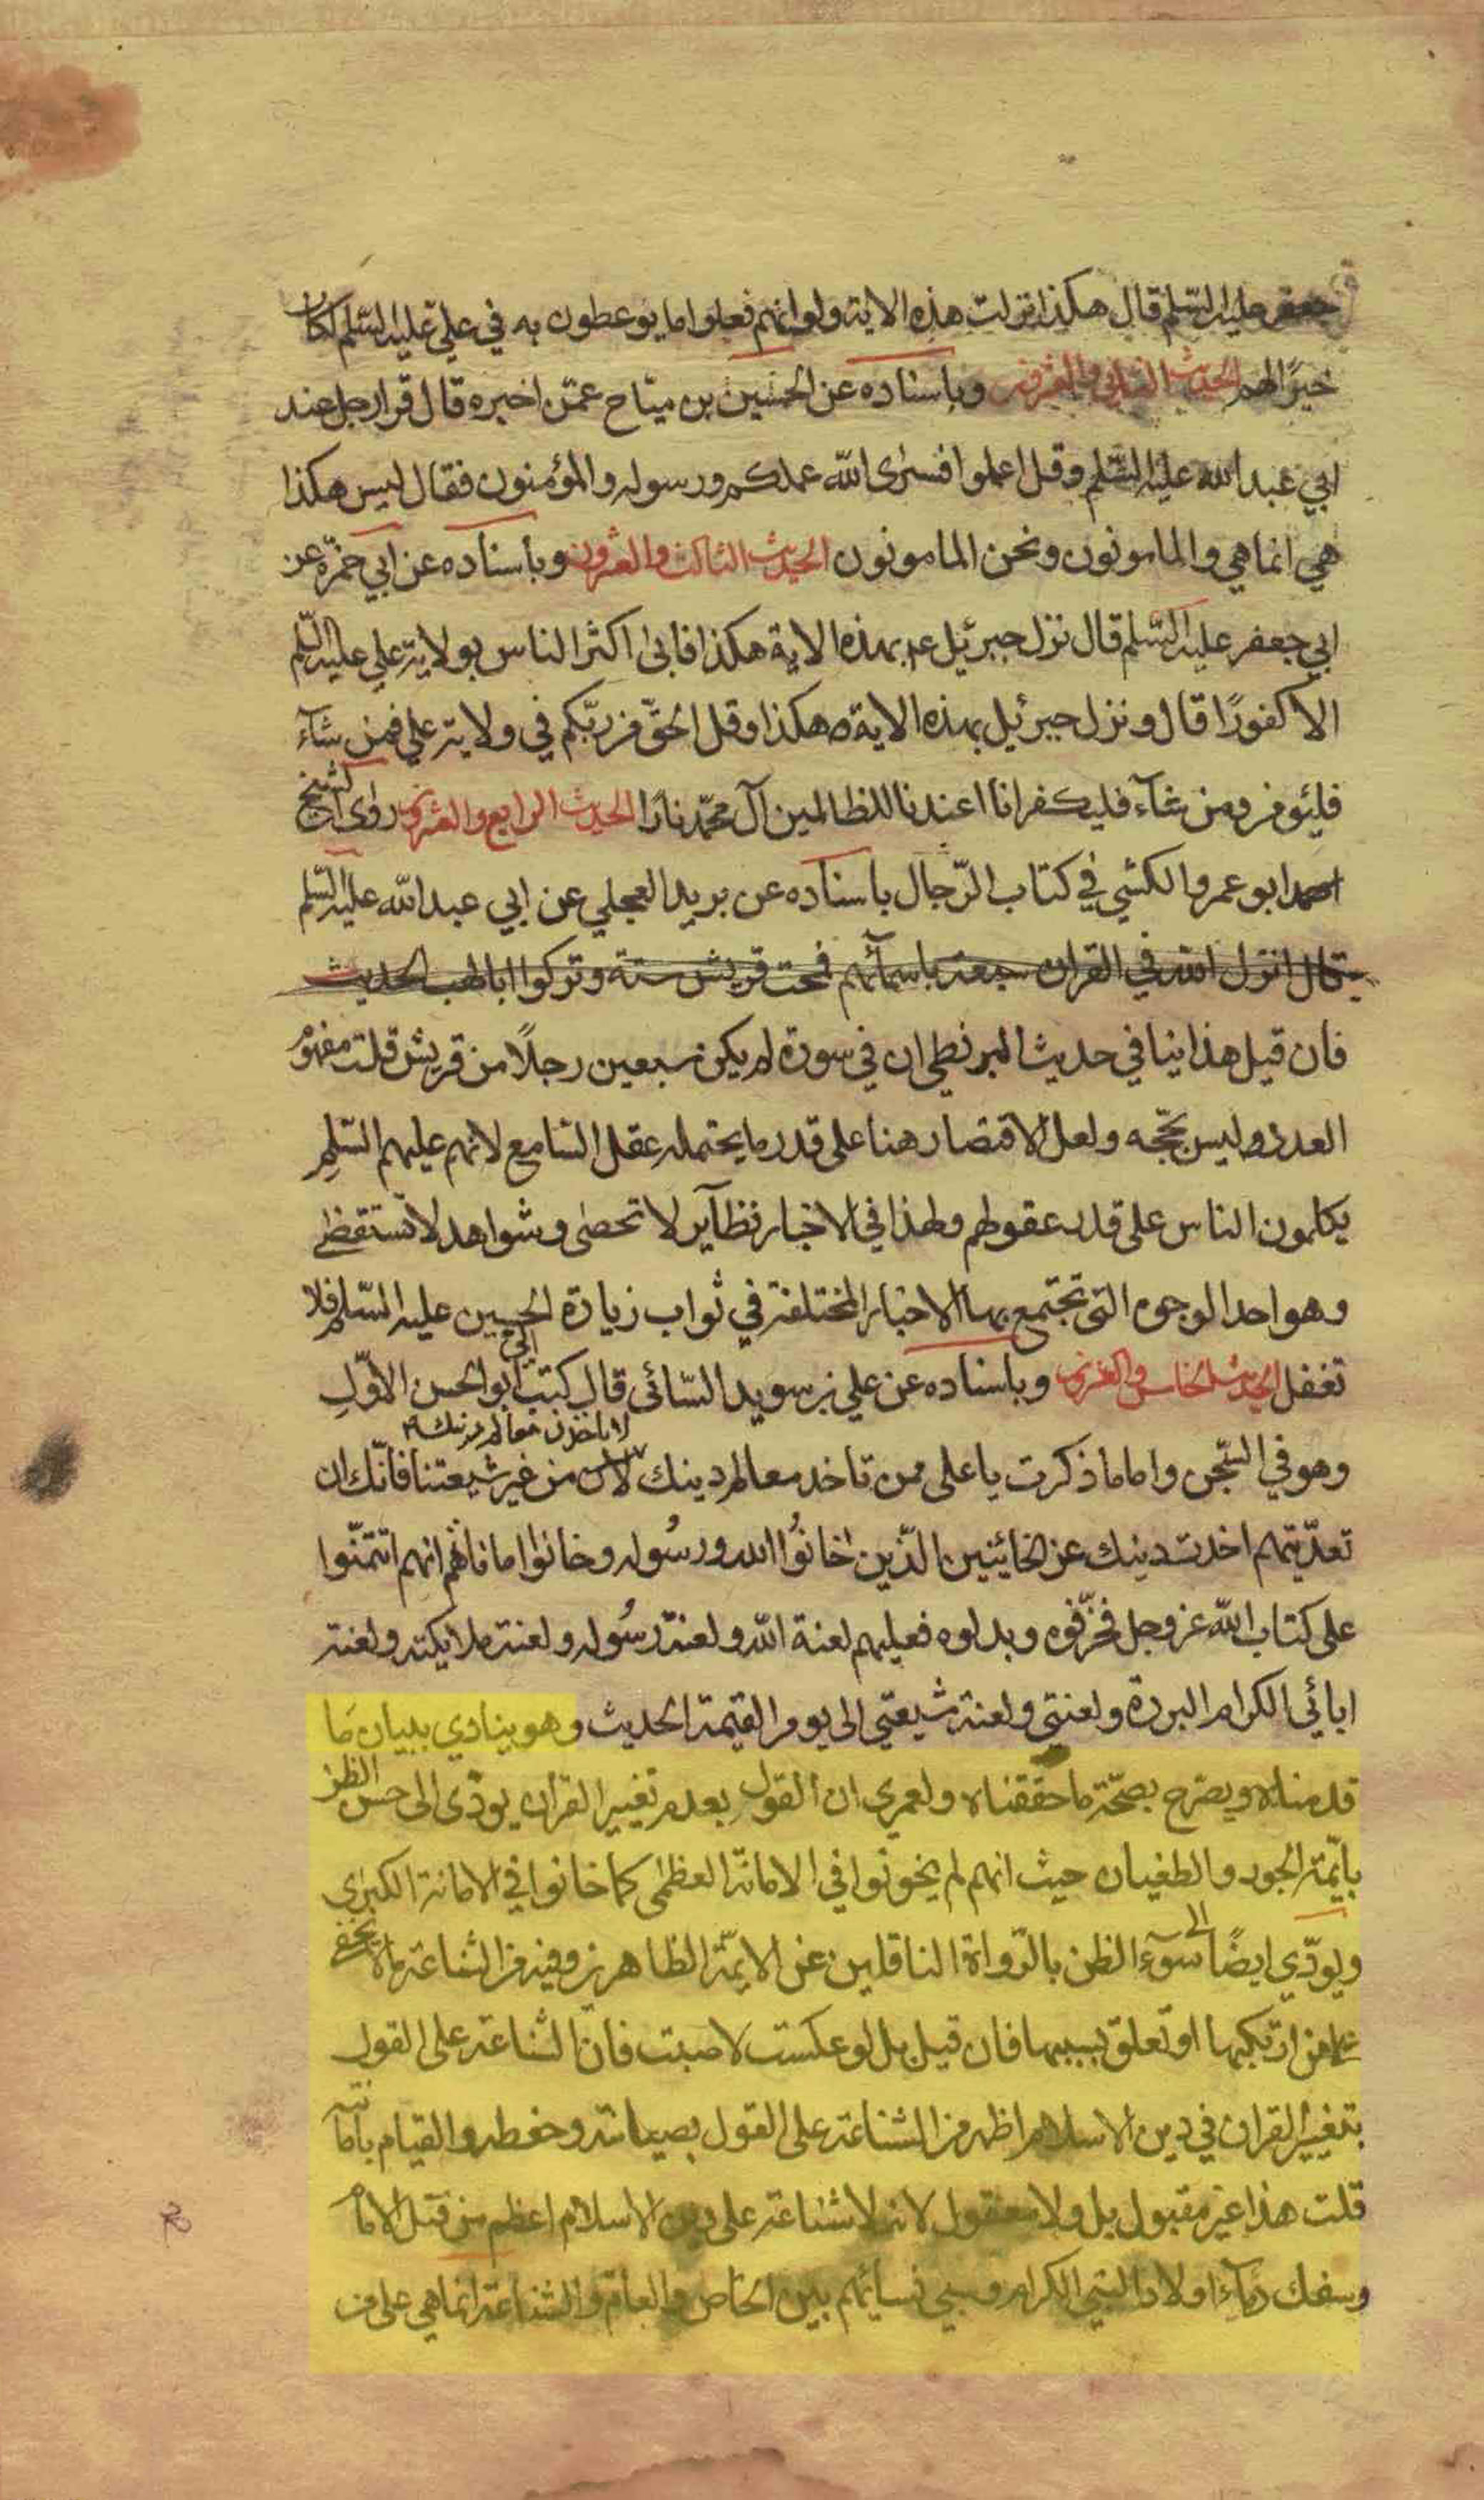 جعفر عليه السلم قال هكذا نزلت هذه الاية ولو انهم فعلوا ما يوعظون به في علي عليه السلم لكان
خيرًا لهم الحديث الثاني والعشرون وباسناده عن الحسين بن مياح عمّن اخبره قال قرا رجل عند
ابي عبد الله عليه السّلم وقل اعملوا فسيرى الله عملكم ورسوله والمؤمنون فقال ليس هكذا
هي انما هي والمامونون ونحن المامونون الحديث الثالث والعشرون وباسناده عن ابي حمزة عن
ابي جعفر عليه السّلم قال نزل جبرئيل عم بهذه الاية هكذا فابى اكثر الناس بولاية علي عليه السّلم
الا كفورًا قال ونزل جبرئيل بهذه الاية هكذا وقل الحقّ من ربّكم في ولاية علي فمن شآء
فليؤمن ومن شآء فليكفر انا اعتدنا للظالمين آل محمّد نارًا الحديث الرابع والعشرون روى الشيخ
ابو عمرو الكشي في كتاب الرّجال باسناده عن بريد العجلي عن ابي عبد الله عليه السّلم
قال انزل الله في القران سبعة باسمآئهم فمحت قريش ستة وتركوا ابا لهب الحديث
فان قيل هذا ينافي حديث البزنطي ان في سورة لم يكن سبعين رجلًا من قريش قلت مفهوم
العدد وليس بحجّه ولعل الاقتصار هنا على قدر ما يحتمله عقل السّامع لانهم عليهم السّلم
يكلمون الناس على قدر عقولهم ولهذا في الاخبار نظآير لا تحصى وشواهد لا تستقصى
وهو احد الوجوه التي تجتمع بها الاخبار المختلفة في ثواب زيارة الحسين عليه السّلم فلا
تغفل الحديث الخامس والعشرون وباسناده عن علي بن سويد السّائي قال كتب الي ابو الحسن الاوّل
وهو في السّجن واما ما ذكرت يا على ممن تاخذ معالم دينك لا تاخذن معالم دينك من غير شيعتنا فانّك ان
تعدّيتهم اخذت دينك عن الخائنين الذّين خانُوا الله ورسُوله وخانوا اماناتهم انهم ائتمنّوا
على كتاب الله عز وجل فحرّفوه وبدلوه فعليهم لعنة الله ولعنة رسُوله ولعنة ملايكته ولعنة
ابائي الكرام البررة ولعنتي ولعنة شيعتي الى يوم القيمة الحديث وهو ينادي ببيان مَا
قدمناه ويصّرح بصحّة ما حققناه ولعمري ان القول بعدم تغيير القران يودّى الى حسن الظن
بايّمة الجور والطغيان حيث انهم لم يخونوا في الامانة العظمى كما خانوا في الامانة الكبرى
ويودّي ايضًا الى سوء الظن بالرّواة الناقلين عن الايمّة الطاهرين وفيه من الشناعة ما لا يخفى
على من ارتكبها او تعلق بسببها فان قيل بل لو عكست لاصبت فانّ الشناعة على القول
بتغيير القران في دين الاسلام اظهر من الشناعة على القول بصيانته وحفظه والقيام بامانته
قلت هذا غير مقبول بل ولا معقول لانه لا شناعة على دين الاسلام اعظم من قتل الامام
وسفك دماء اولاد النبي الكرام وسبي نسايئهم بين الخاص والعام والشناعة انما هي على من